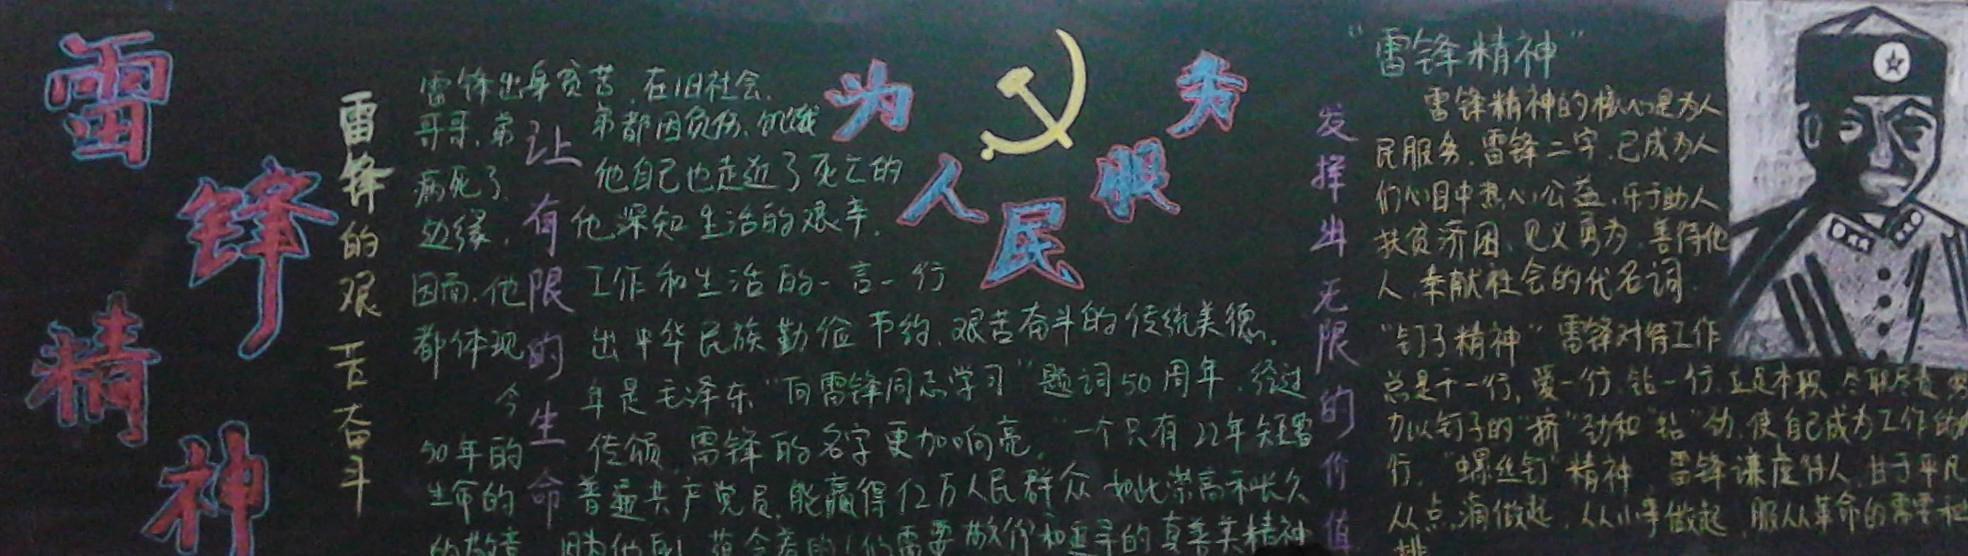 雷锋精神
雷锋的艰苦奋斗
雷锋出身贫苦,在旧社会,
哥哥,弟弟都因负伤,饥饿
病死了,他自己也走近了死亡的
边缘,他深知生活的艰辛,
因而,他工作和生活的一言一行
都体现出中华民族勤俭节约,艰苦奋斗的传统美德。
今年是毛泽东“向雷锋同志学习”题词50周年,经过
50年的传颂,雷锋的名字更加响亮。“一个只有22年短暂
生命的普通共产党员,能赢得亿万人民群众如此崇高和长久
让有限的生命
为人民服务
发挥出无限的价值
“雷锋精神”
雷锋精神的核心是为人
民服务,雷锋二字,已成为人
们心目中热心公益,乐于助人
扶贫济困,见义勇为,善待他
人,奉献社会的代名词.
“钉子精神”雷锋对待工作
总是干一行,爱一行,钻一行,立足本职,尽职尽责
力以钉子的“挤”劲和“钻”劲,使自己成为工作的
行,“螺丝钉”精神 雷锋谦虚待人,甘于平凡
从点滴做起,从小事做起,服从革命的需要和